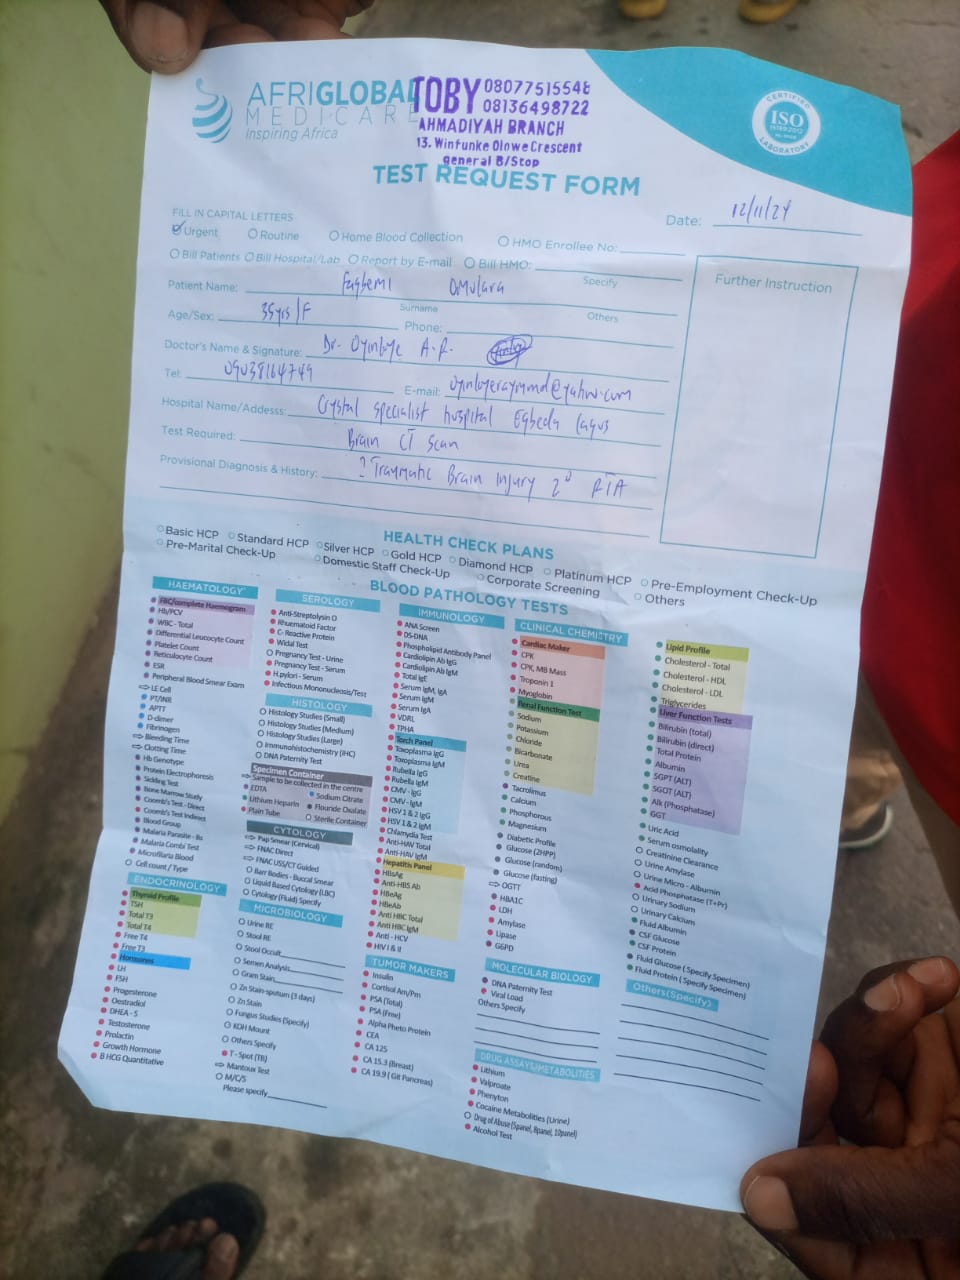 AFRIGLOBAL
MEDICARE
Inspiring Africa
TOBY 08077515548
08136498722
AHMADIYAH BRANCH
13. Winfunke Olowe Crescent
general B/Stop
CERTIFIED
ISO
15189:2012
LABORATORY
TEST REQUEST FORM
Date: 12/11/24
FILL IN CAPITAL LETTERS
Urgent Routine Home Blood Collection HMO Enrollee No:
Bill Patients Bill Hospital/Lab Report by E-mail Bill HMO:
Specify
Further Instruction
Patient Name: Fagbemi Omolara
Surname Others
Age/Sex: 35yrs/F Phone:
Doctor's Name & Signature: Dr. Oyinloye A.R.
Tel: 09038164749 E-mail: oyinloyeraymmd@yahoo.com
Hospital Name/Addesss: Crystal specialist hospital Egbeda Lagos
Test Required: Brain CT Scan
Provisional Diagnosis & History: ? Traumatic Brain Injury 2° RTA
HEALTH CHECK PLANS
Basic HCP Standard HCP Silver HCP Gold HCP Diamond HCP Platinum HCP Pre-Employment Check-Up
Pre-Marital Check-Up Domestic Staff Check-Up Corporate Screening Others
BLOOD PATHOLOGY TESTS
HAEMATOLOGY
FBC/complete Haemogram
Hb/PCV
WBC - Total
Differential Leucocyte Count
Platelet Count
Reticulocyte Count
ESR
Peripheral Blood Smear Exam
LE Cell
PT/INR
APTT
D-dimer
Fibrinogen
Bleeding Time
Clotting Time
Hb Genotype
Protein Electrophoresis
Sickling Test
Bone Marrow Study
Coomb's Test - Direct
Coomb's Test Indirect
Blood Group
Malaria Parasite - Bs
Malaria Combi Test
Microfilaria Blood
Cell count / Type
ENDOCRINOLOGY
Thyroid Profile
TSH
Total T3
Total T4
Free T4
Free T3
Hormones
LH
FSH
Progesterone
Oestradiol
DHEA - S
Testosterone
Prolactin
Growth Hormone
B HCG Quantitative
SEROLOGY
Anti-Streptolysin O
Rhuematoid Factor
C- Reactive Protein
Widal Test
Pregnancy Test - Urine
Pregnancy Test - Serum
H.pylori - Serum
Infectious Mononucleosis/Test
HISTOLOGY
Histology Studies (Small)
Histology Studies (Medium)
Histology Studies (Large)
Immunohistochemistry (IHC)
DNA Paternity Test
Specimen Container
Sample to be collected in the centre
EDTA Sodium Citrate
Lithium Heparin Flouride Oxalate
Plain Tube Sterile Container
CYTOLOGY
Pap Smear (Cervical)
FNAC Direct
FNAC USS/CT Guided
Barr Bodies - Buccal Smear
Liquid Based Cytology (LBC)
Cytology (Fluid) Specify
MICROBIOLOGY
Urine RE
Stool RE
Stool Occult
Semen Analysis
Gram Stain
Zn Stain-sputum (3 days)
Zn Stain
Fungus Studies (Specify)
KOH Mount
Others Specify
T - Spot (TB)
Mantoux Test
M/C/S
Please specify
IMMUNOLOGY
ANA Screen
DS-DNA
Phospholipid Antibody Panel
Cardiolipin Ab IgG
Cardiolipin Ab IgM
Total IgE
Serum IgM, IgA
Serum IgM
Serum IgA
VDRL
TPHA
Torch Panel
Toxoplasma IgG
Toxoplasma IgM
Rubella IgG
Rubella IgM
CMV - IgG
CMV - IgM
HSV 1 & 2 IgG
HSV 1 & 2 IgM
Chlamydia Test
Anti-HAV Total
Anti-HAV IgM
Hepatitis Panel
HBsAg
Anti-HBS Ab
HBeAg
HBeAb
Anti HBC Total
Anti HBC IgM
Anti - HCV
HIV I & II
TUMOR MAKERS
Insulin
Cortisol Am/Pm
PSA (Total)
PSA (Free)
Alpha Pheto Protein
CEA
CA 125
CA 15.3 (Breast)
CA 19.9 ( Git Pancreas)
CLINICAL CHEMISTRY
Cardiac Maker
CPK
CPK, MB Mass
Troponin 1
Myoglobin
Renal Function Test
Sodium
Potassium
Chloride
Bicarbonate
Urea
Creatine
Tacrolimus
Calcum
Phosphorous
Magnesium
Diabetic Profile
Glucose (2HPP)
Glucose (random)
Glucose (fasting)
OGTT
HBA1C
LDH
Amylase
Lipase
G6PD
MOLECULAR BIOLOGY
DNA Paternity Test
Viral Load
Others Specify
DRUG ASSAYS/METABOLITIES
Lithium
Valproate
Phenyton
Cocaine Metabolities (Urine)
Drug of Abuse (5panel, 8panel, 10panel)
Alcohol Test
Lipid Profile
Cholesterol - Total
Cholesterol - HDL
Cholesterol - LDL
Triglycerides
Liver Function Tests
Bilirubin (total)
Bilirubin (direct)
Total Protein
Albumin
SGPT (ALT)
SGOT (ALT)
Alk (Phosphatase)
GGT
Uric Acid
Serum osmolality
Creatinine Clearance
Urine Amylase
Urine Micro - Albumin
Acid Phosphatase (T+Pr)
Urinary Sodium
Urinary Calcum
Fluid Albumin
CSF Glucose
CSF Protein
Fluid Glucose ( Specify Specimen)
Fluid Protein ( Specify Specimen)
Others(Specify)